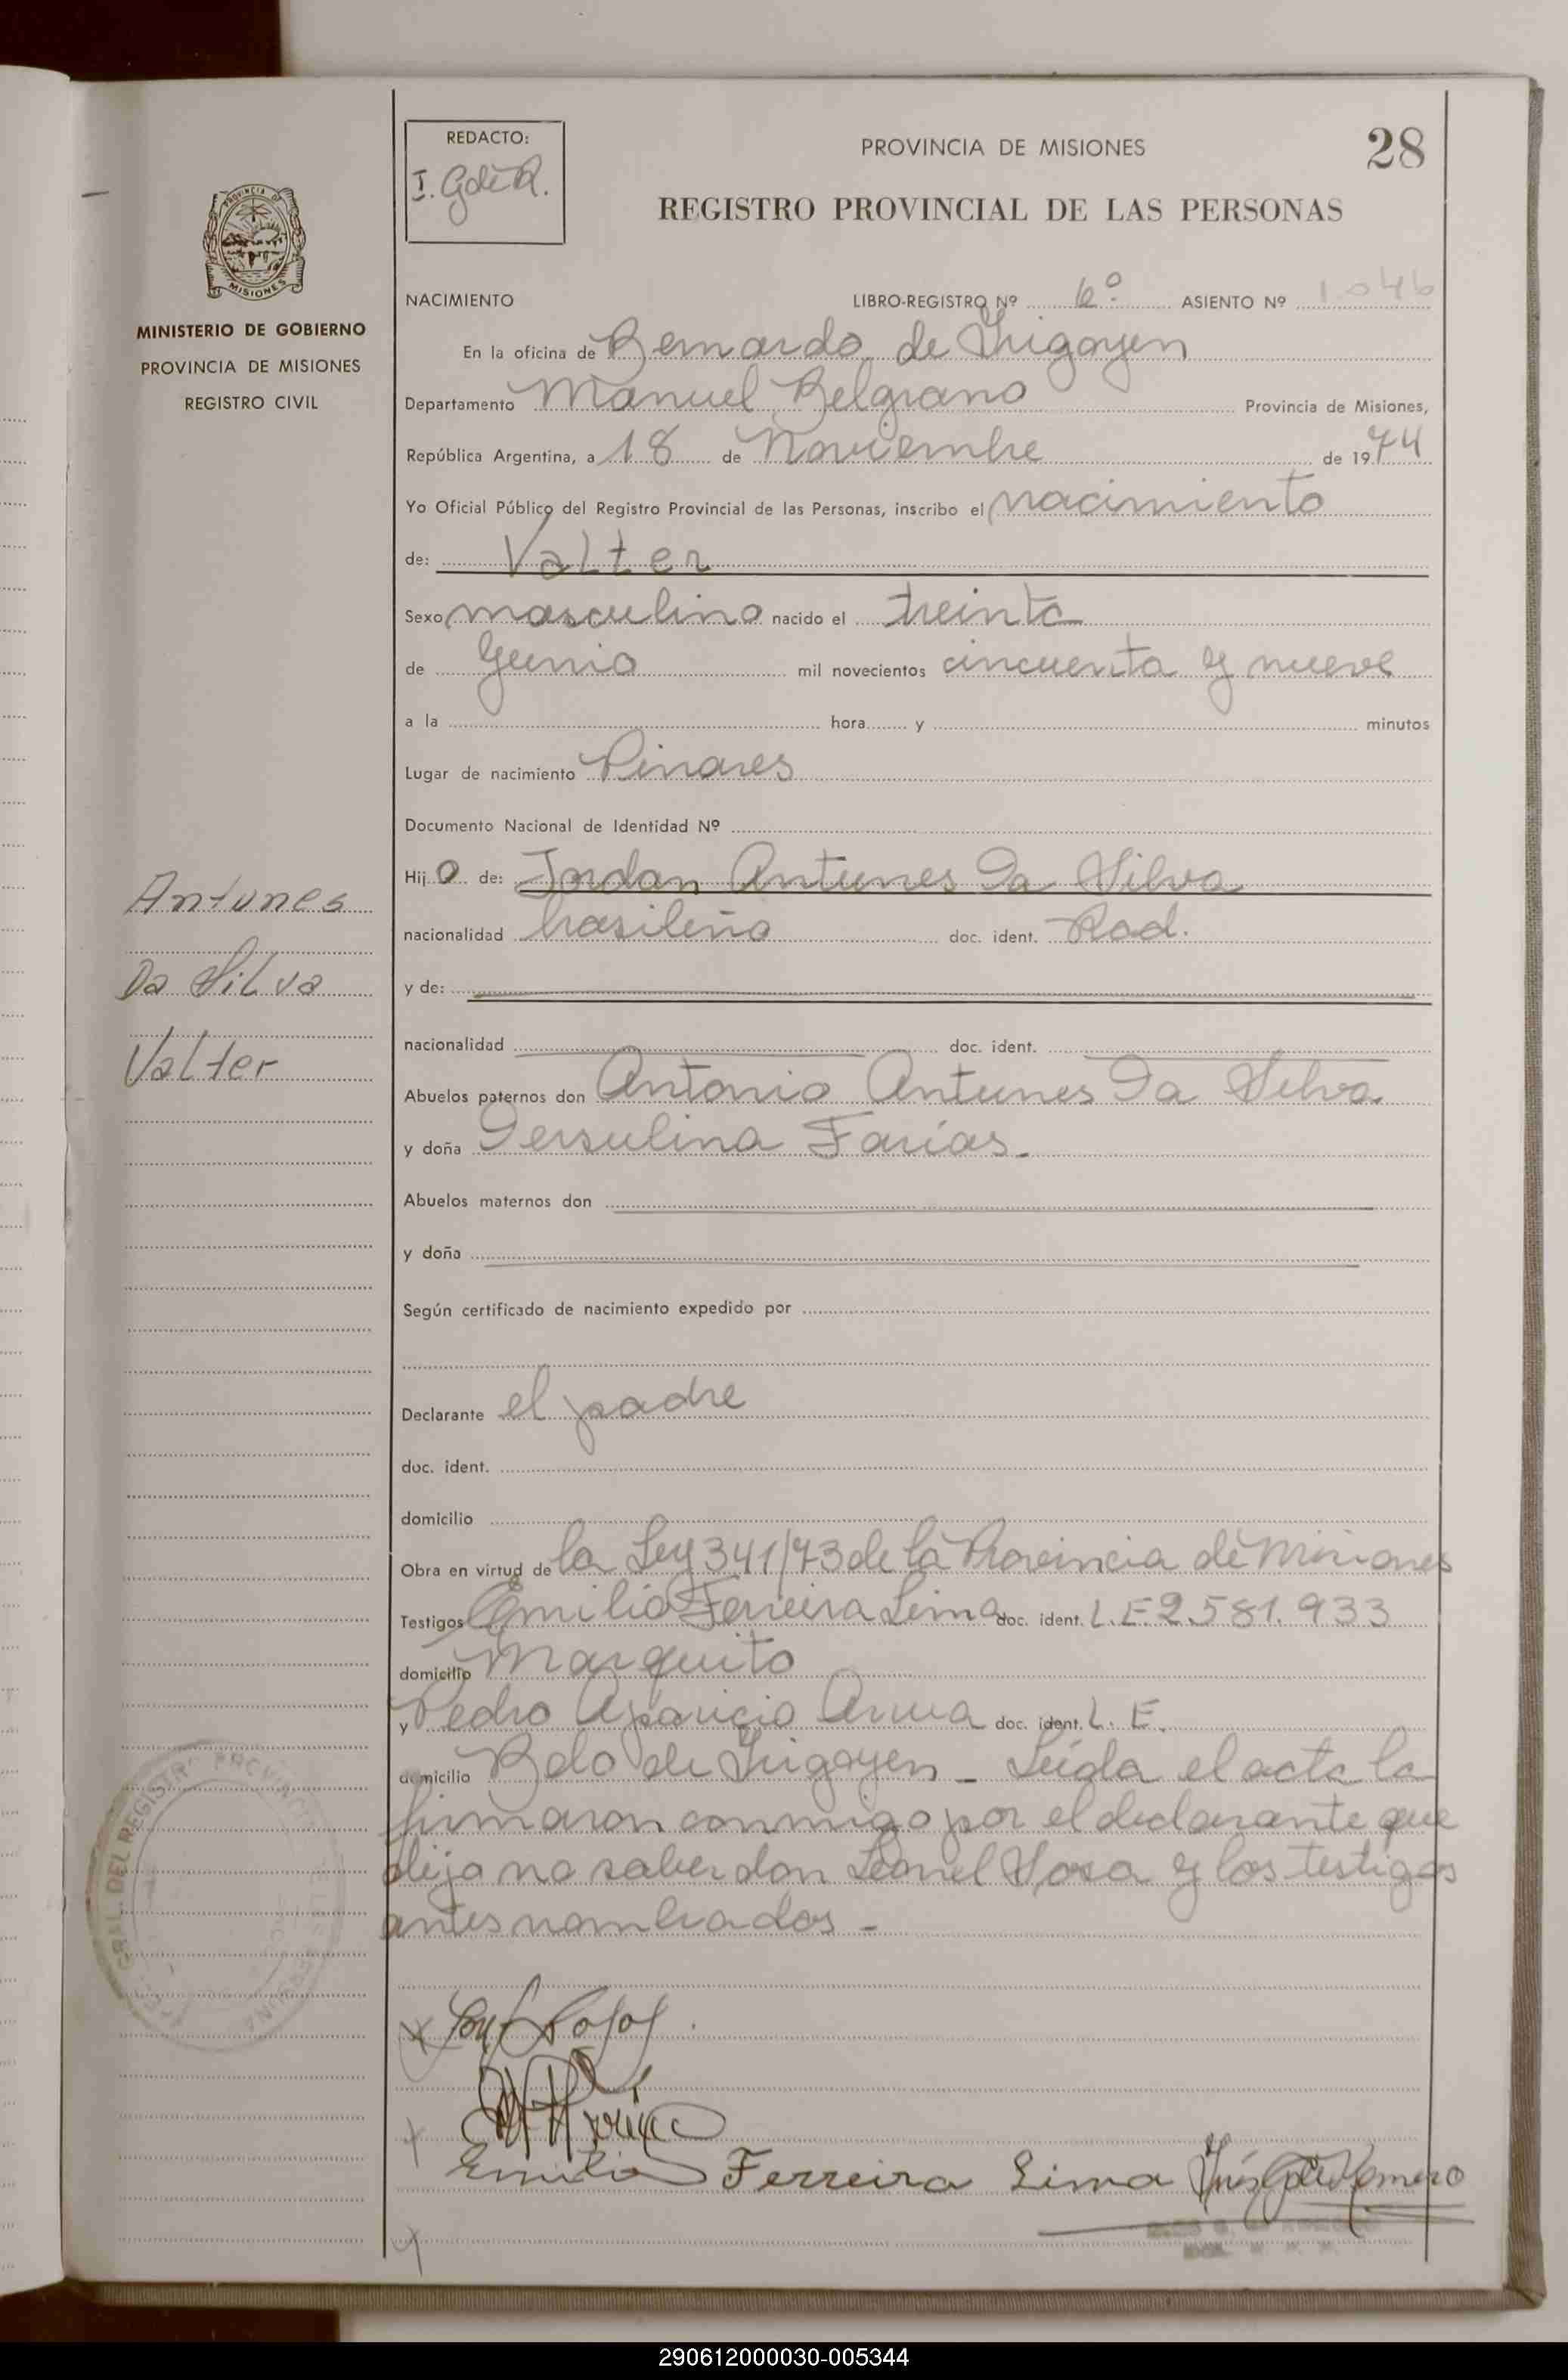 REDACTO:
I. Gde R.
PROVINCIA DE MISIONES
28
REGISTRO PROVINCIAL DE LAS PERSONAS
PROVINCIA
MISIONES
MINISTERIO DE GOBIERNO
PROVINCIA DE MISIONES
REGISTRO CIVIL
NACIMIENTO LIBRO-REGISTRO Nº 6º ASIENTO Nº 1046
En la oficina de Bernardo de Irigoyen
Departamento Manuel Belgrano Provincia de Misiones,
República Argentina, a 18 de Noviembre de 1974
Yo Oficial Público del Registro Provincial de las Personas, inscribo el nacimiento
de: Valter
Sexo masculino nacido el treinta
de Junio mil novecientos cincuenta y nueve
a la hora y minutos
Lugar de nacimiento Pinares
Documento Nacional de Identidad Nº
Hijo de: Jordan Antunes Da Silva
nacionalidad brasileño doc. ident. Rad.
y de:
nacionalidad doc. ident.
Antunes
Da Silva
Valter
Abuelos paternos don Antonio Antunes Da Silva
y doña Dersulina Farías.
Abuelos maternos don
y doña
Según certificado de nacimiento expedido por
Declarante el padre
doc. ident.
domicilio
Obra en virtud de la Ley 341/73 de la Provincia de Misiones
Testigos Emilio Ferreira Lima doc. ident. L.E 2.581.933
domicilio Marquito
y Pedro Aparicio doc. ident. L. E.
domicilio Bdo de Irigoyen - Leída el acta la
firmaron conmigo por el declarante que
dijo no saber don Leonel Sosa y los testigos
antes nombrados -
GRAL. DEL REGISTRO PROVINCIAL
Emilio Ferreira Lima Inés G de Romero
290612000030-005344